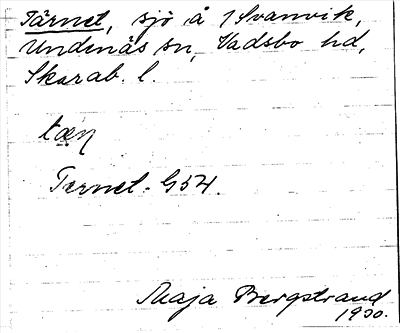 Tärnet, sjö å 1 Svanvik,
Undenäs sn, Vadsbo hd,
Skarab. l.
tæṇ
Ternet. G54.
Maja Bergstrand
1930.